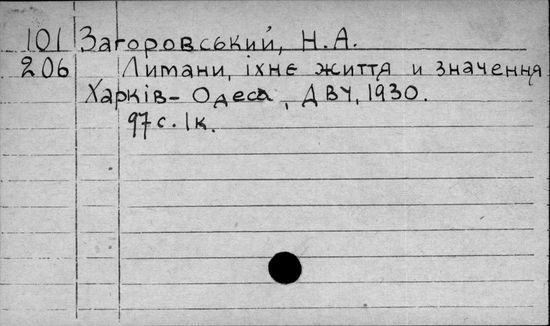 101 Загоровський, Н.А.
206 Лимани, їхнє життя и значення
Харків-Одеса, ДВУ, 1930.
97 с. 1 к.